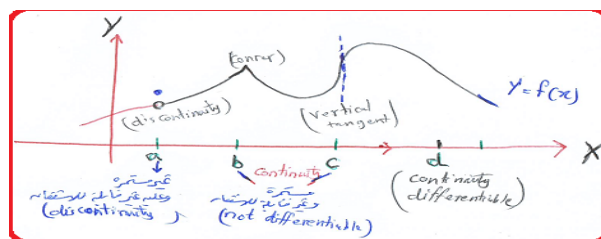 Y
(Conner)
Y = f(x)
(discontinuity)
(vertical
tangent)
X
a
b
c
d
غير مستمرة
وعليه غير قابلة للاشتقاق
(discontinuity)
Continuity
مستمرة
وغير قابلة للاشتقاق
(not differentiable)
(continuity
differentiable)